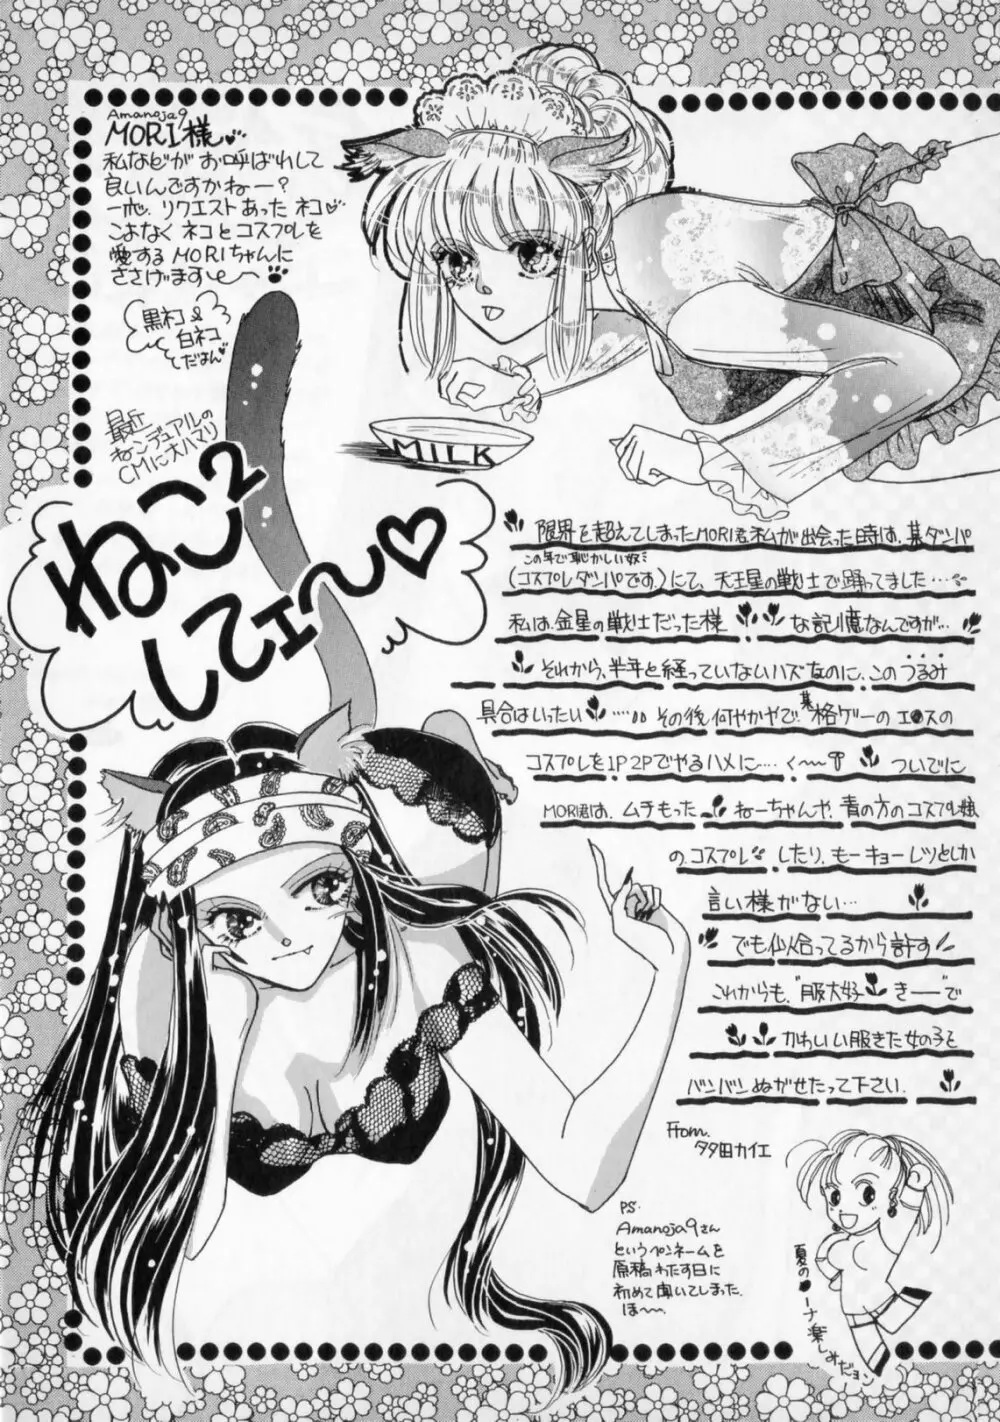 Amanoja9
MORI様
私などが お呼ばれして
良いんですかねー?
一応、リクエストあった ネコ
こよなく ネコとコスプレを
愛する MORIちゃんに
ささげます
黒ネコ &
白ネコ
だよん
最近
CMに大ハマリ
MILK
ねこ2
してェ〜♡
限界を超えてしまったMORI君 私が出会った時は、某ダンパ
この年で恥かしい奴…
(コスプレダンパです。)にて、天王星の戦士で踊ってました…
私は、金星の戦士だった様 な記憶なんですが…
それから、半年と経っていないハズなのに、このうるみ
具合はいったい ‥‥ その後 何やかやで、某格ゲーの エ●スの
コスプレを1P 2Pでやるハメに… ついでに
MORI君は、ムチもった ねーちゃんや、青の方のコスプレ娘
の、コスプレ したり、もーキョーレツとしか
言い様がない…
でも似合ってるから許す
これからも、"服大好 きー"で
かわいい服きた女の子を
バンバンぬがせたって下さい.
From.
タタ田カイエ
PS.
Amanoja9さん
というペンネームを
原稿わたす日に
初めて聞いてしまった.
ほ〜.
夏の●ーナ楽しみだヨン